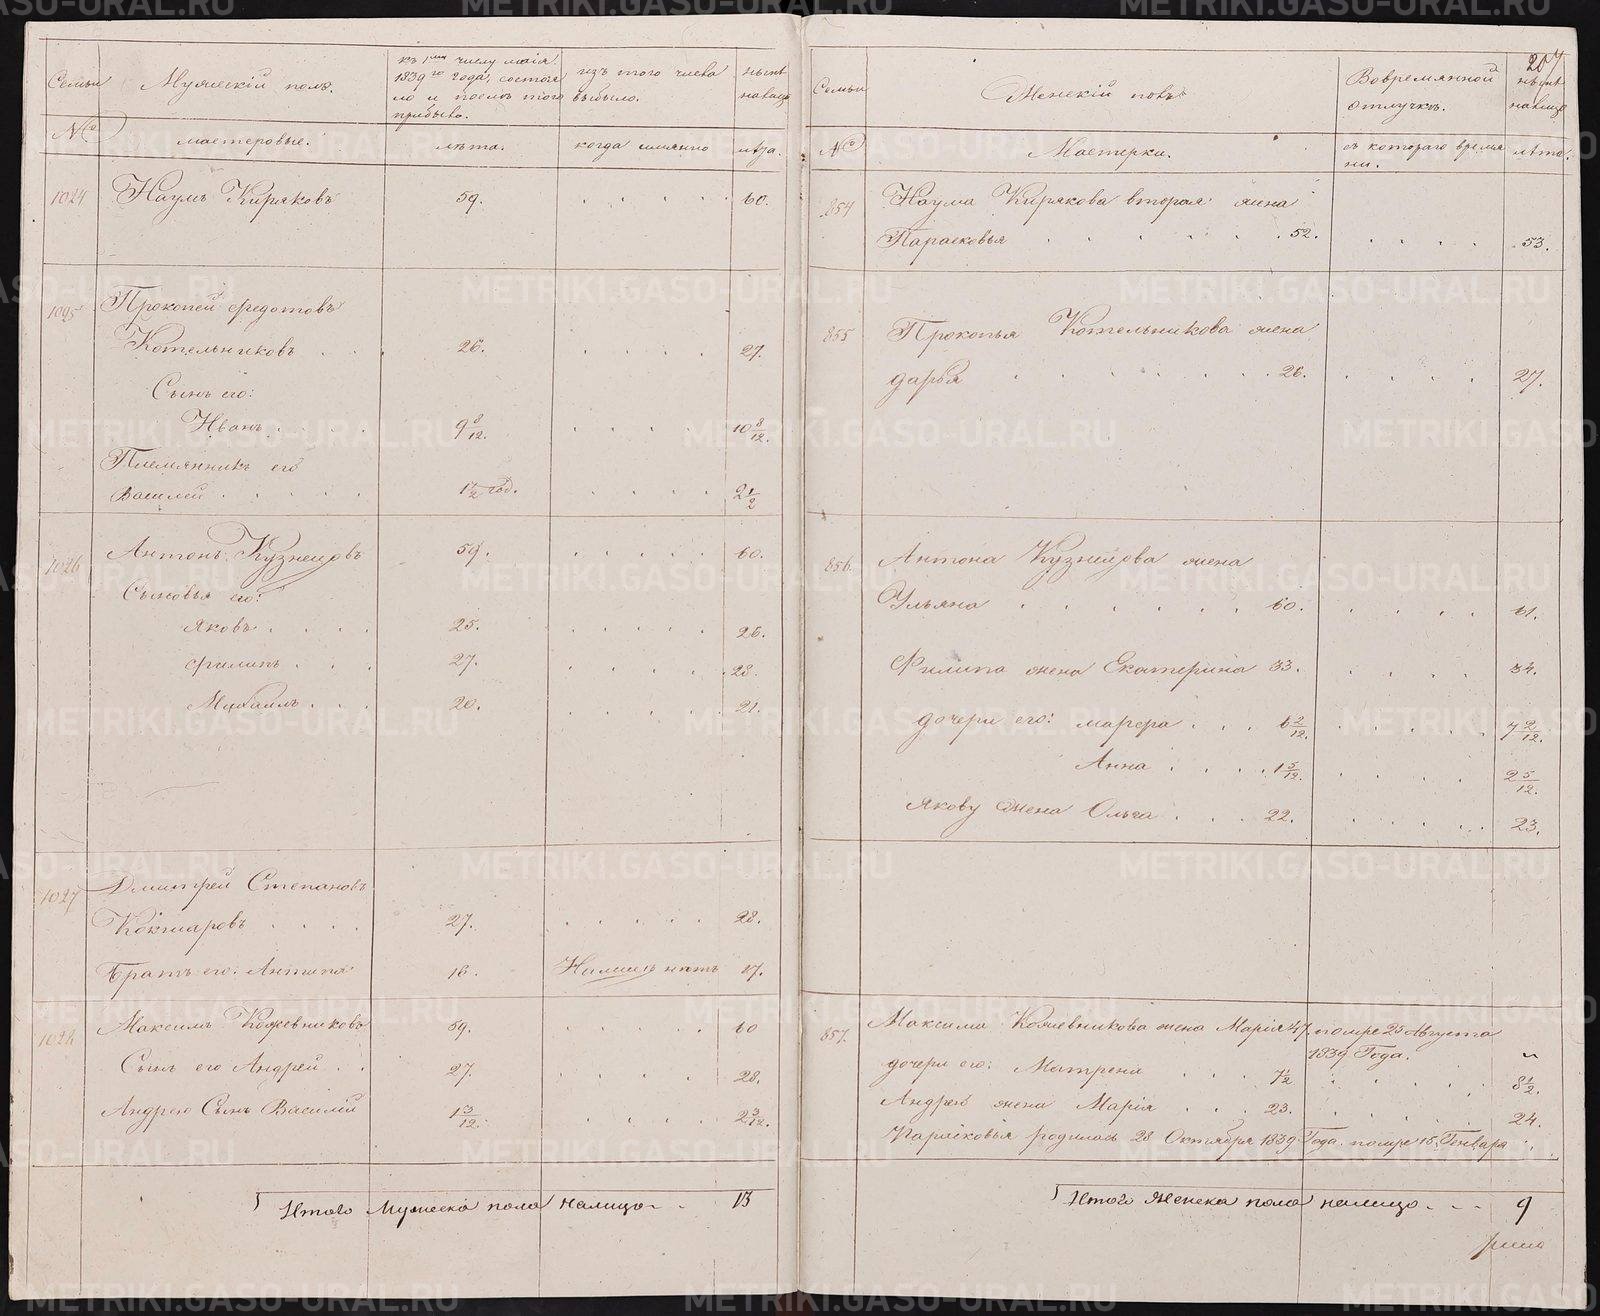 204
Семьи
Мужескій полъ.
къ 1му числу маія
1839го года, состоя
ло и послѣ того
прибыло.
изъ того числа
выбыло.
нынѣ
налицо
№
мастеровые.
лѣта.
когда имянно
лѣта.
1024
Наумъ Киряковъ
59.
60.
1025
Прокопей Федотовъ
Котельниковъ
26.
27.
Сынъ его:
Иванъ
9 8/12.
10 8/12.
Племянникъ его
Василей
1 1/2 год.
2 1/2
1026
Антонъ Кузнецовъ
59.
60.
Сыновья его:
Яковъ
25.
26.
Филипъ
27.
28.
Михаилъ
20.
21.
1027
Дмитрей Степановъ
Кокшаровъ
27.
28.
Братъ его: Антипа
16.
17.
1028
Максимъ Кожевниковъ
59.
60
Сынъ его Андрей
27.
28.
Андрею Сынъ Василій
1 3/12.
2 3/12.
Итого Мужеска пола налицо
13
Семьи
Женскій полъ
Вовремянной
отлучкѣ.
нынѣ
налицо
№
Мастерки.
съ котораго время
ни.
лѣта.
854
Наума Кирякова вторая жена
Парасковья
52.
53.
855
Прокопья Котельникова жена
Дарья
26.
27.
856.
Антона Кузнецова жена
Ульяна
60.
61.
Филипа жена Екатерина 33.
34.
дочери его: Марфа
6 2/12.
7 2/12.
Анна
1 5/12.
2 5/12.
Якову жена Ольга
22.
23.
857.
Максима Кожевникова жена Марія 47
помре 25 Августа
1839 Года.
дочери его: Матрена
7 1/2
8 1/2.
Андрея жена Марія
23.
24.
Парасковья родилась 28 Октября 1839 Года. помре 15 Генваря
Итого Женска пола налицо
9
METRIKI.GASO-URAL.RU